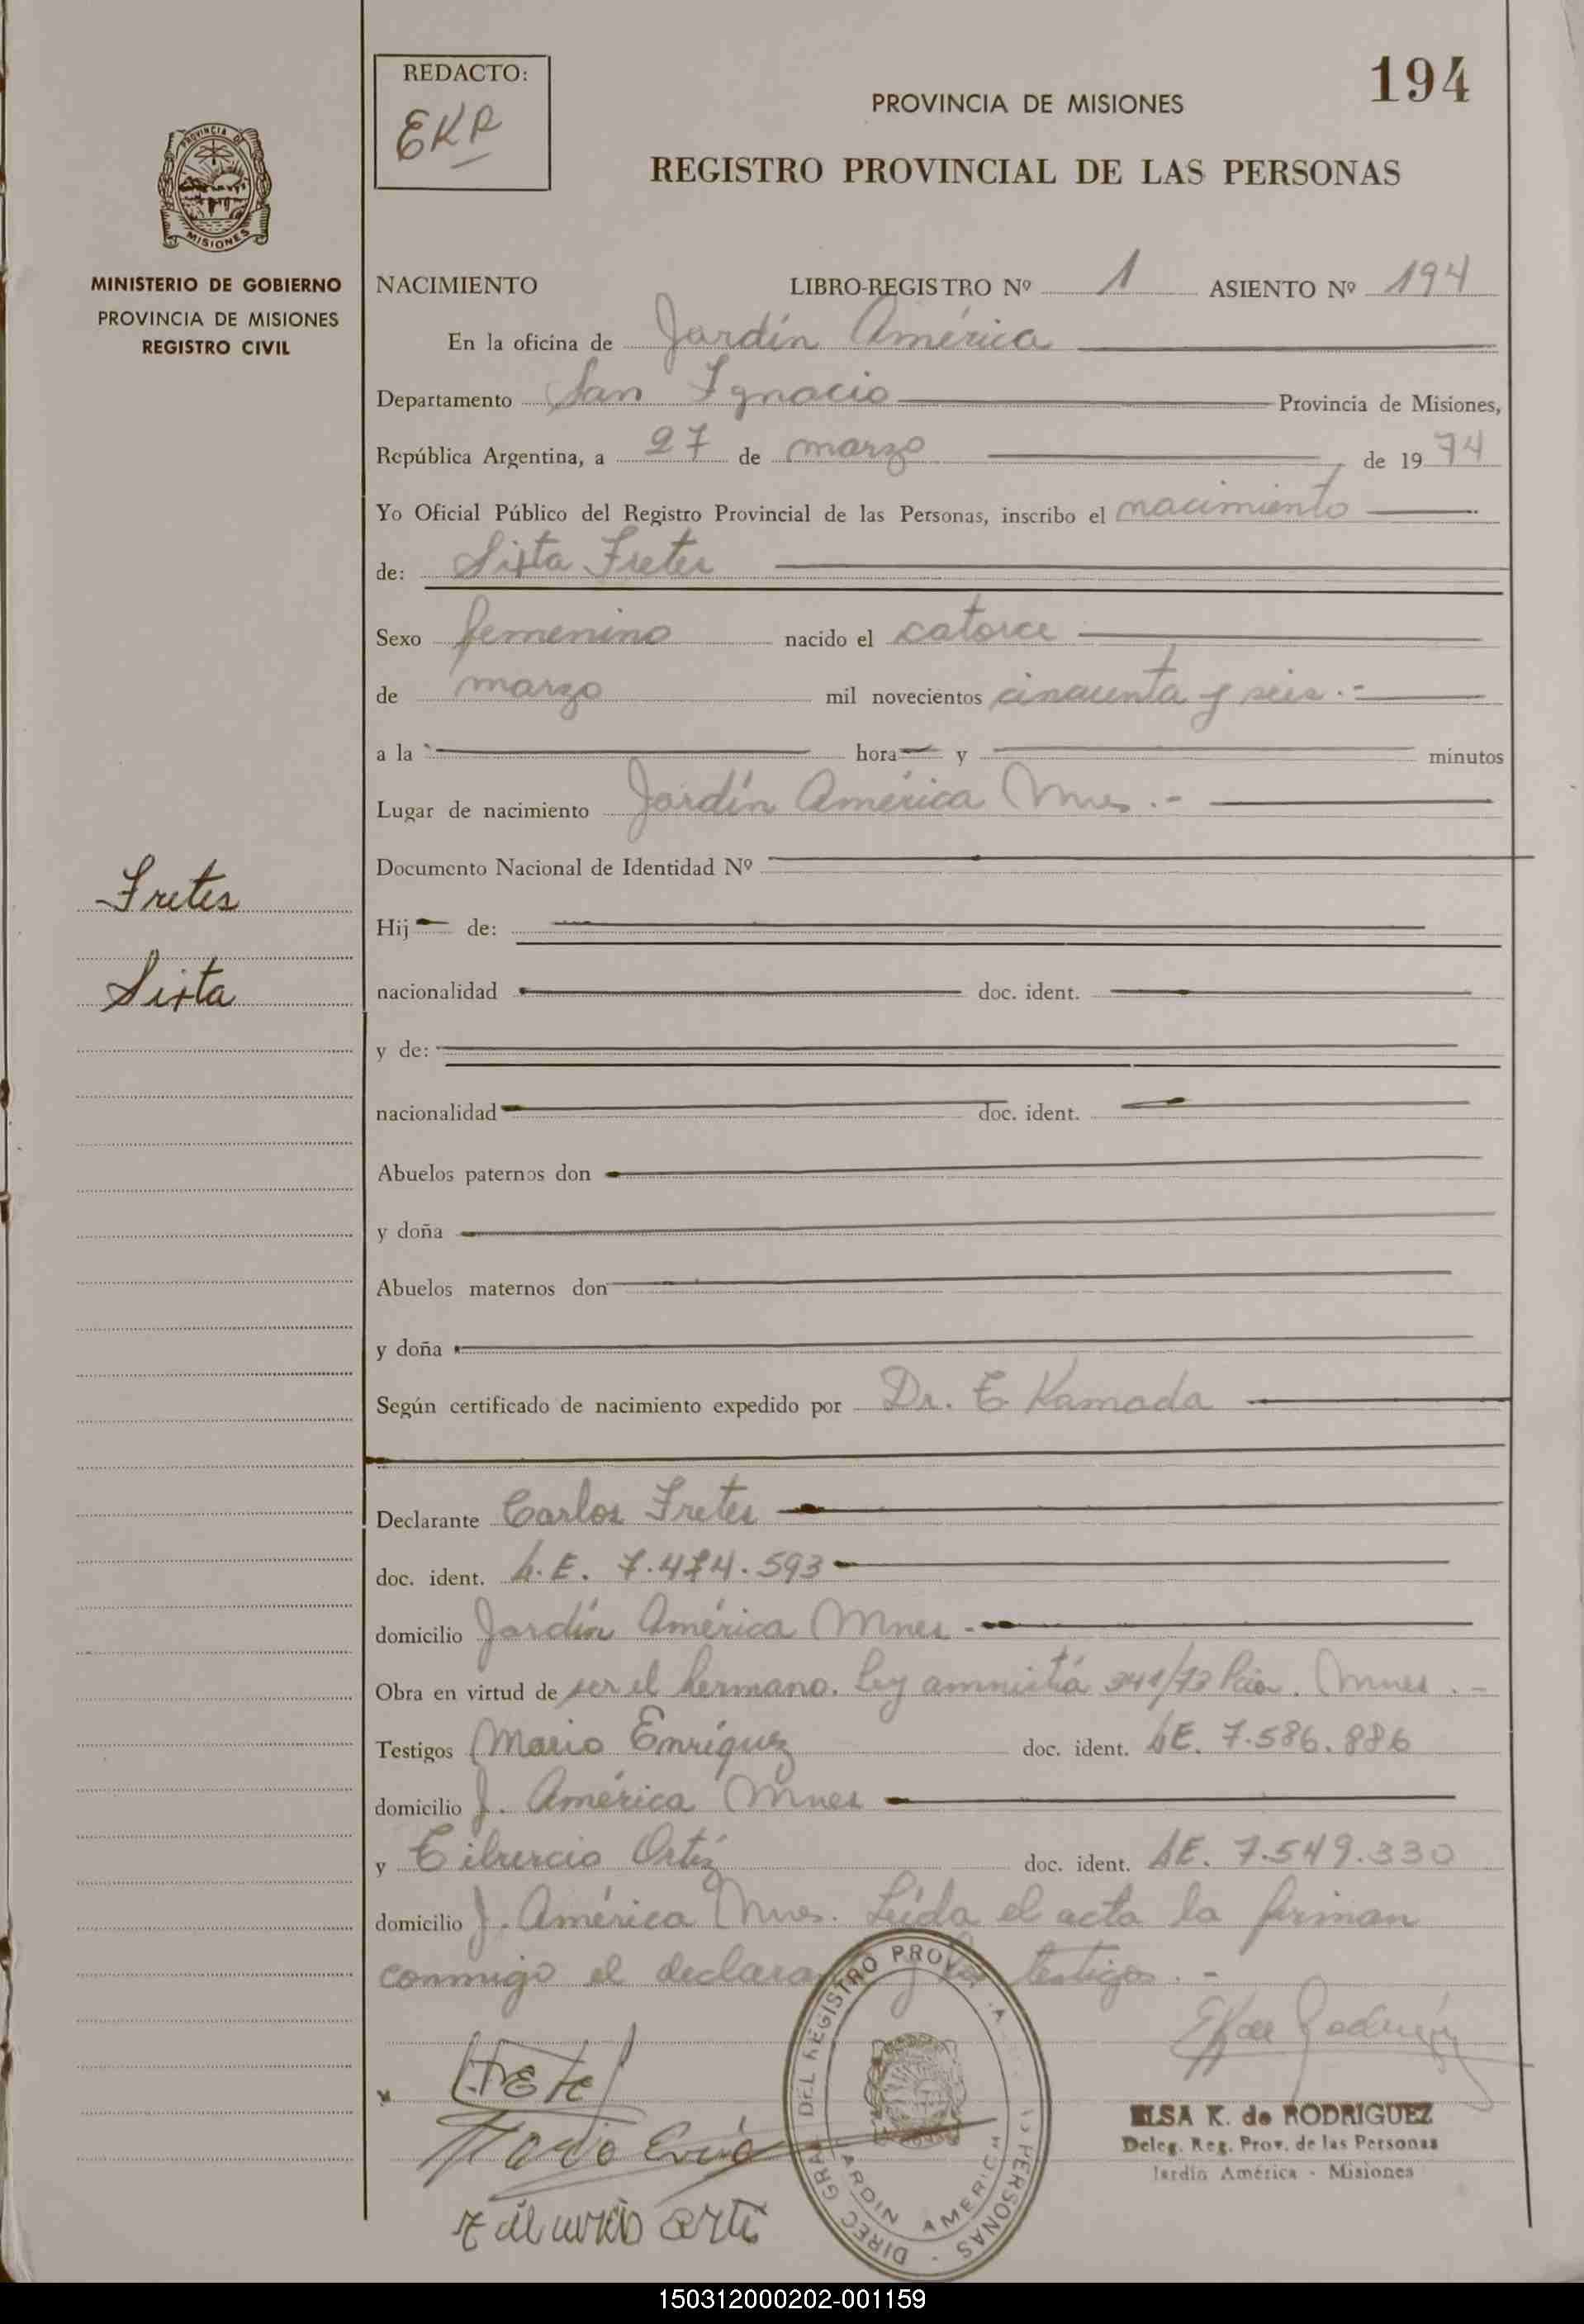 REDACTO:
EKR
194
PROVINCIA DE MISIONES
REGISTRO PROVINCIAL DE LAS PERSONAS
PROVINCIA DE
MISIONES
MINISTERIO DE GOBIERNO
PROVINCIA DE MISIONES
REGISTRO CIVIL
NACIMIENTO LIBRO-REGISTRO Nº 1 ASIENTO Nº 194
En la oficina de Jardín América
Departamento San Ignacio Provincia de Misiones,
República Argentina, a 27 de marzo de 1974
Yo Oficial Público del Registro Provincial de las Personas, inscribo el nacimiento
de: Sixta Fretes
Sexo femenino nacido el catorce
de marzo mil novecientos cincuenta y seis.-
a la hora y minutos
Lugar de nacimiento Jardín América Mnes.-
Documento Nacional de Identidad Nº
Fretes
Hij de:
Sixta
nacionalidad doc. ident.
y de:
nacionalidad doc. ident.
Abuelos paternos don
y doña
Abuelos maternos don
y doña
Según certificado de nacimiento expedido por Dr. E Kamada
Declarante Carlos Fretes
doc. ident. L.E. 7.474.593
domicilio Jardín América Mnes.-
Obra en virtud de ser el hermano. Ley amnistía Mnes.-
Testigos Mario Enríquez doc. ident. LE. 7.586.886
domicilio J. América Mnes
y Tiburcio Ortíz doc. ident. LE. 7.549.330
domicilio J. América Mnes. Leída el acta la firman
conmigo el declara y los testigos.-
DIREC GRAL DEL REGISTRO PERSONAS
JARDIN AMERICA
ELSA K. de RODRIGUEZ
Deleg. Reg. Prov. de las Personas
Jardín América - Misiones
150312000202-001159